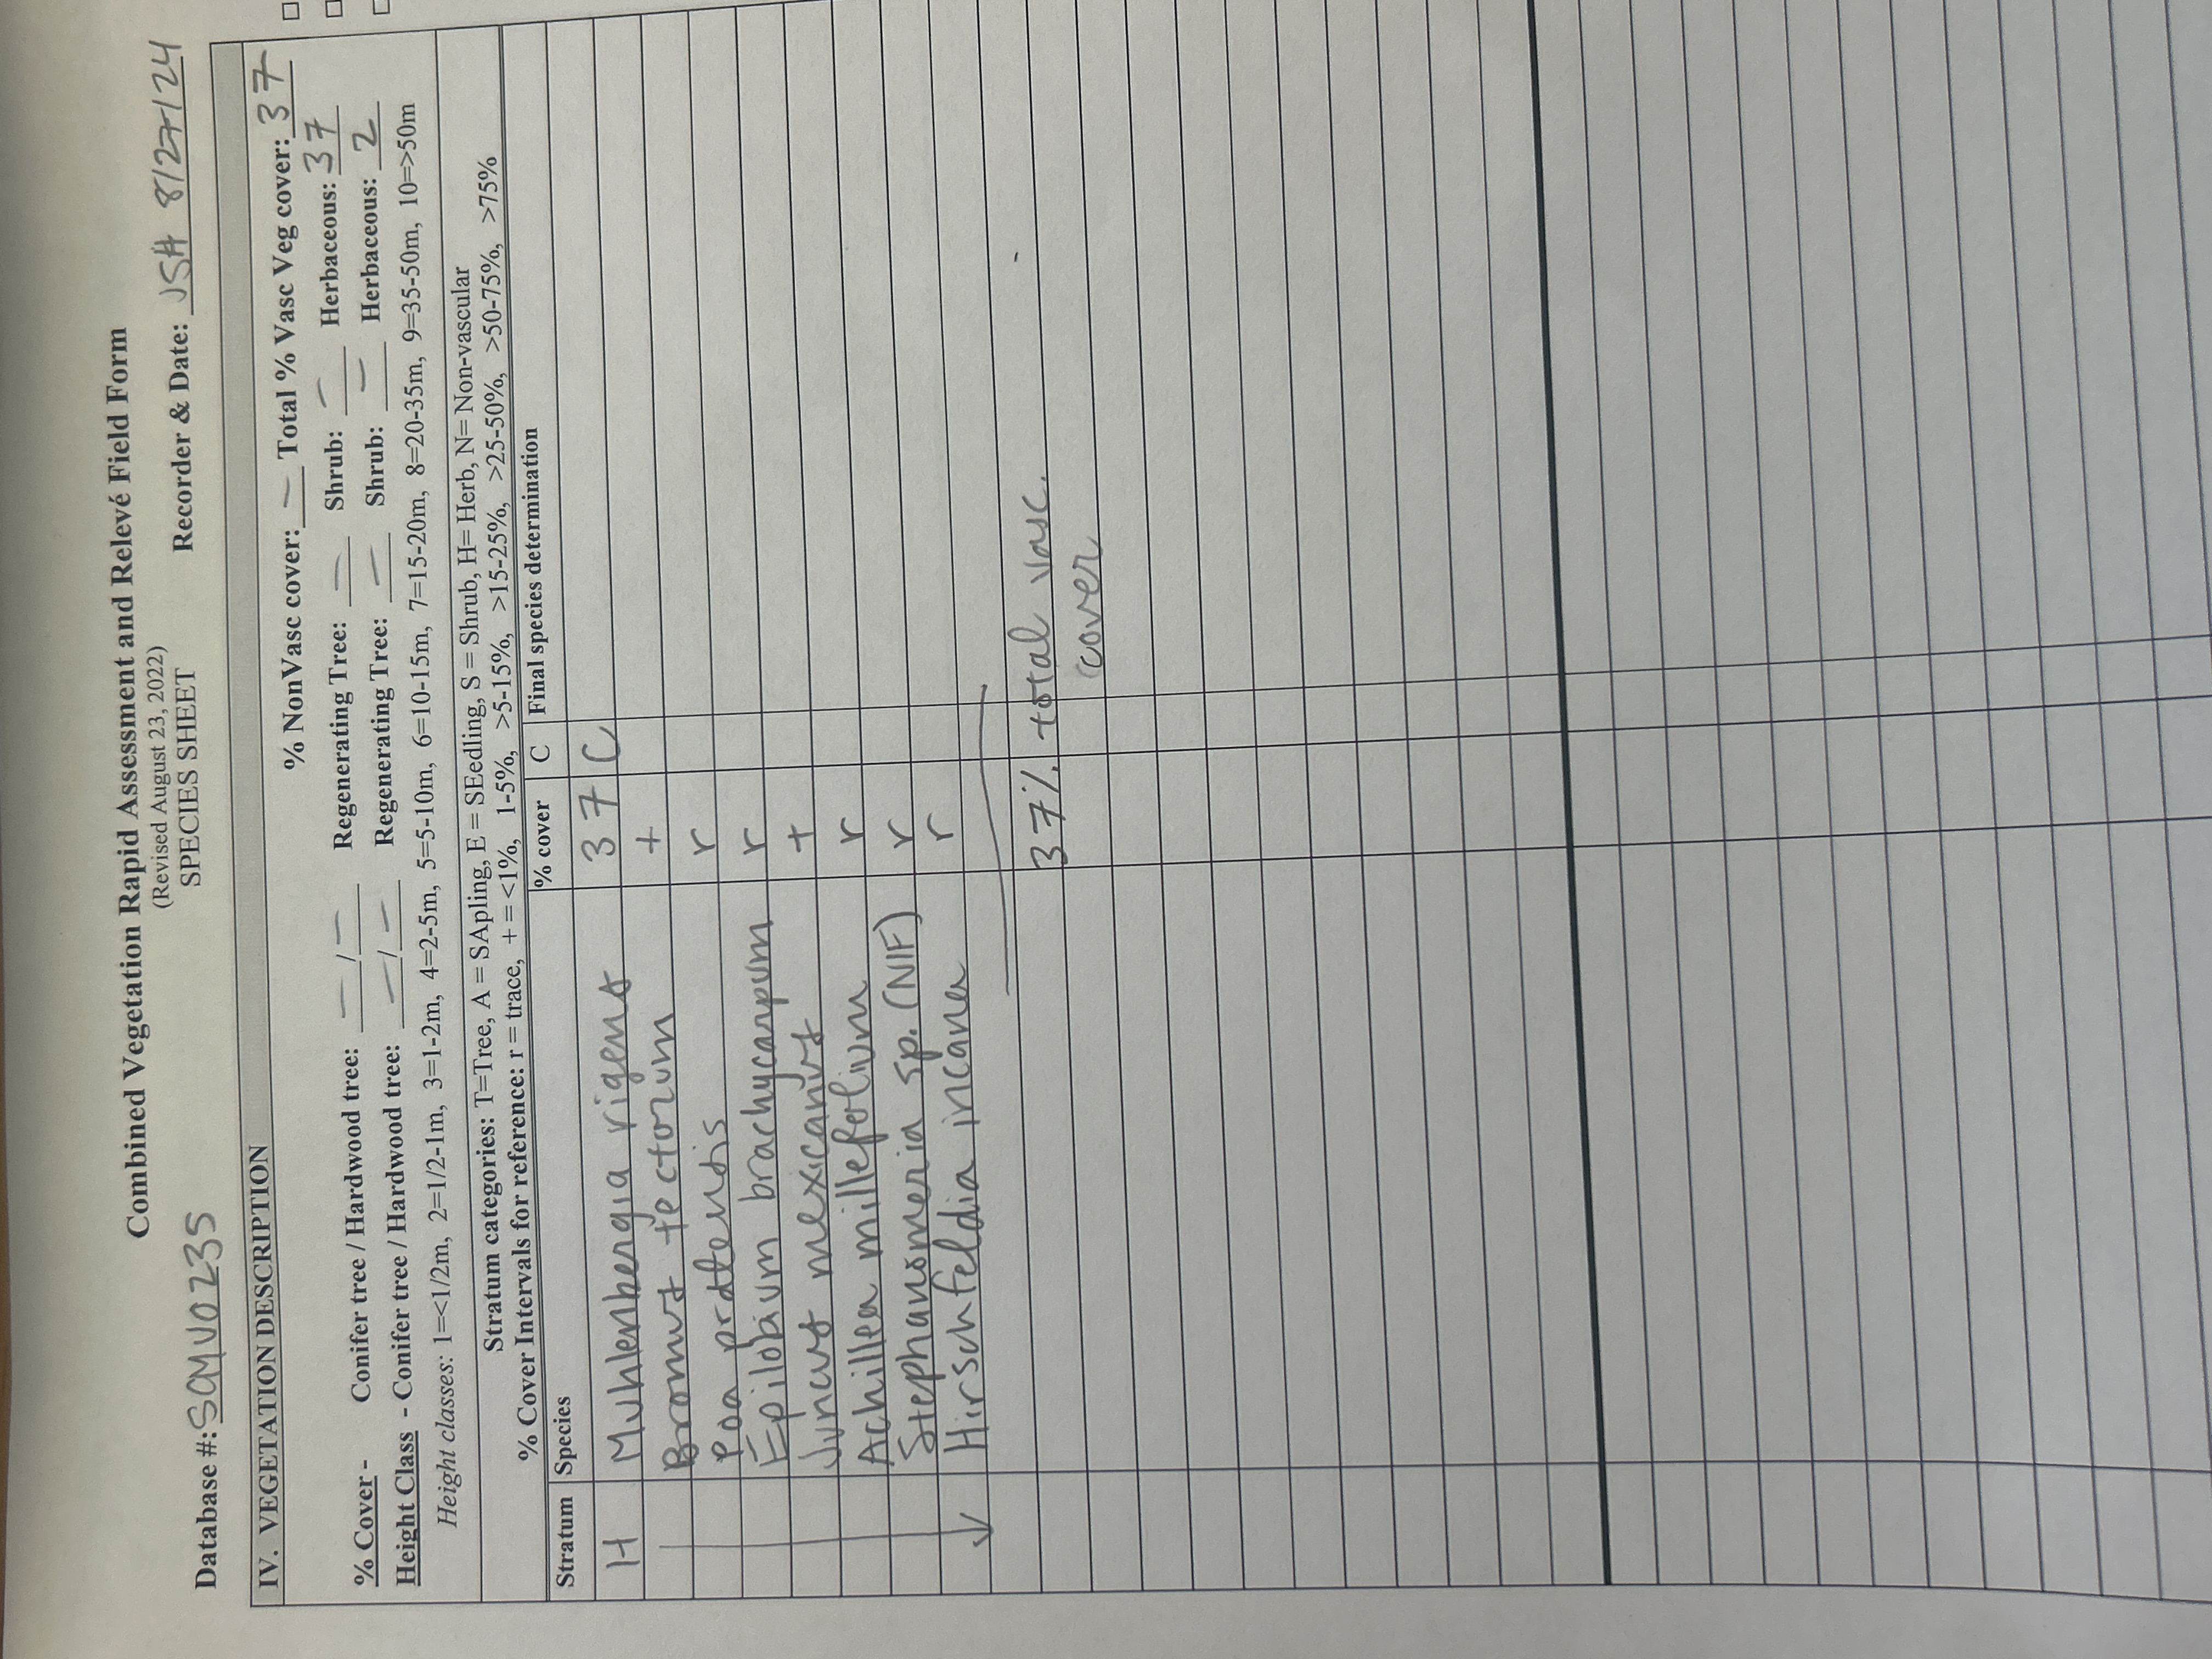 Combined Vegetation Rapid Assessment and Relevé Field Form
(Revised August 23, 2022)
SPECIES SHEET
Database #: SQMV0235 Recorder & Date: JSH 8/27/24
IV. VEGETATION DESCRIPTION
% NonVasc cover: — Total % Vasc Veg cover: 37
% Cover - Conifer tree / Hardwood tree: — / — Regenerating Tree: — Shrub: — Herbaceous: 37
Height Class - Conifer tree / Hardwood tree: — / — Regenerating Tree: — Shrub: — Herbaceous: 2
Height classes: 1=<1/2m, 2=1/2-1m, 3=1-2m, 4=2-5m, 5=5-10m, 6=10-15m, 7=15-20m, 8=20-35m, 9=35-50m, 10=>50m
Stratum categories: T=Tree, A = SApling, E = SEedling, S = Shrub, H= Herb, N= Non-vascular
% Cover Intervals for reference: r = trace, + = <1%, 1-5%, >5-15%, >15-25%, >25-50%, >50-75%, >75%
Stratum Species % cover C Final species determination
H Muhlenbergia rigens 37 C
Bromus tectorum +
Poa pratensis r
Epilobium brachycarpum r
Juncus mexicanus +
Achillea millefolium r
Stephanomeria sp. (NIF) r
Hirschfeldia incana r
37% total vasc.
cover